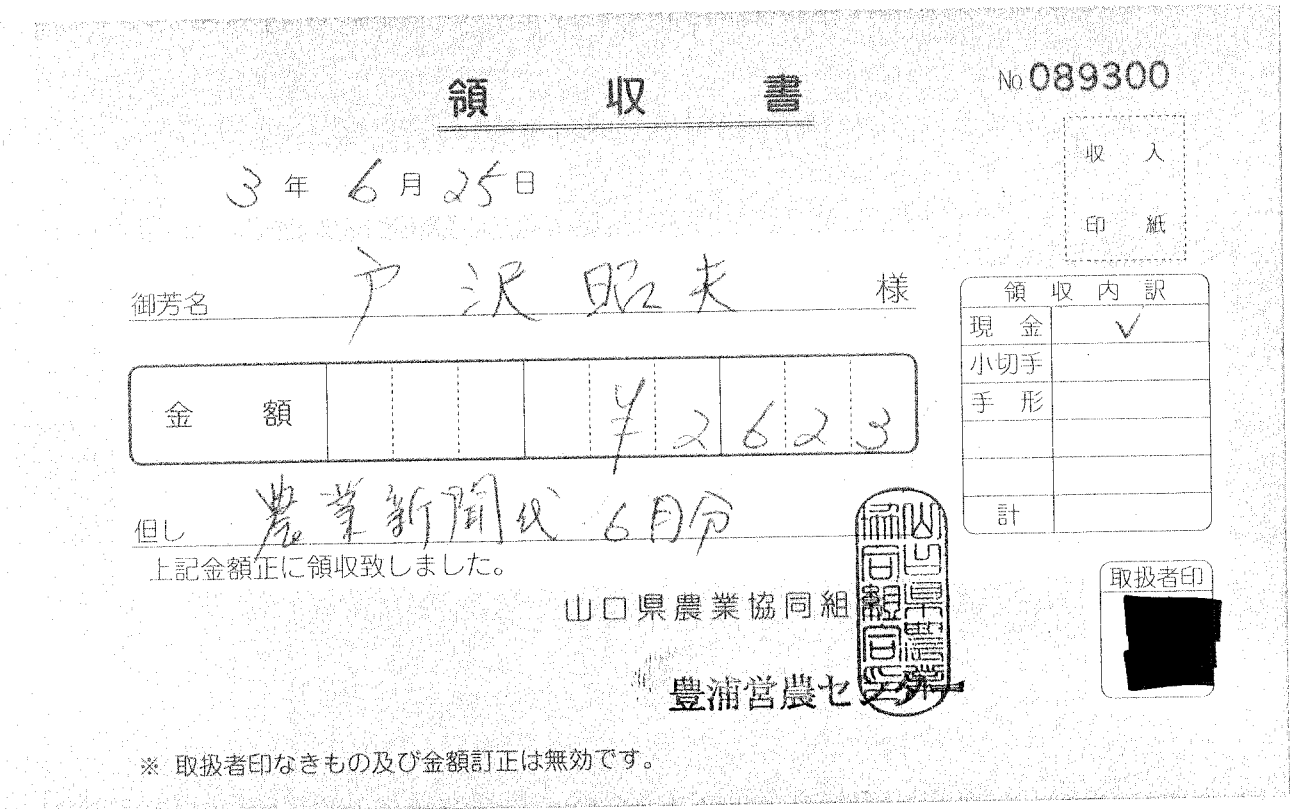 領収書
No 089300
収入
印紙
3年6月25日
御芳名 戸沢昭夫 様
領収内訳
現金 ✓
小切手
手形
計
金額 ¥2623
但し 農業新聞代 6月分
上記金額正に領収致しました。
山口県農業協同組
山口県農業
協同組合印
豊浦営農センター
取扱者印
※ 取扱者印なきもの及び金額訂正は無効です。